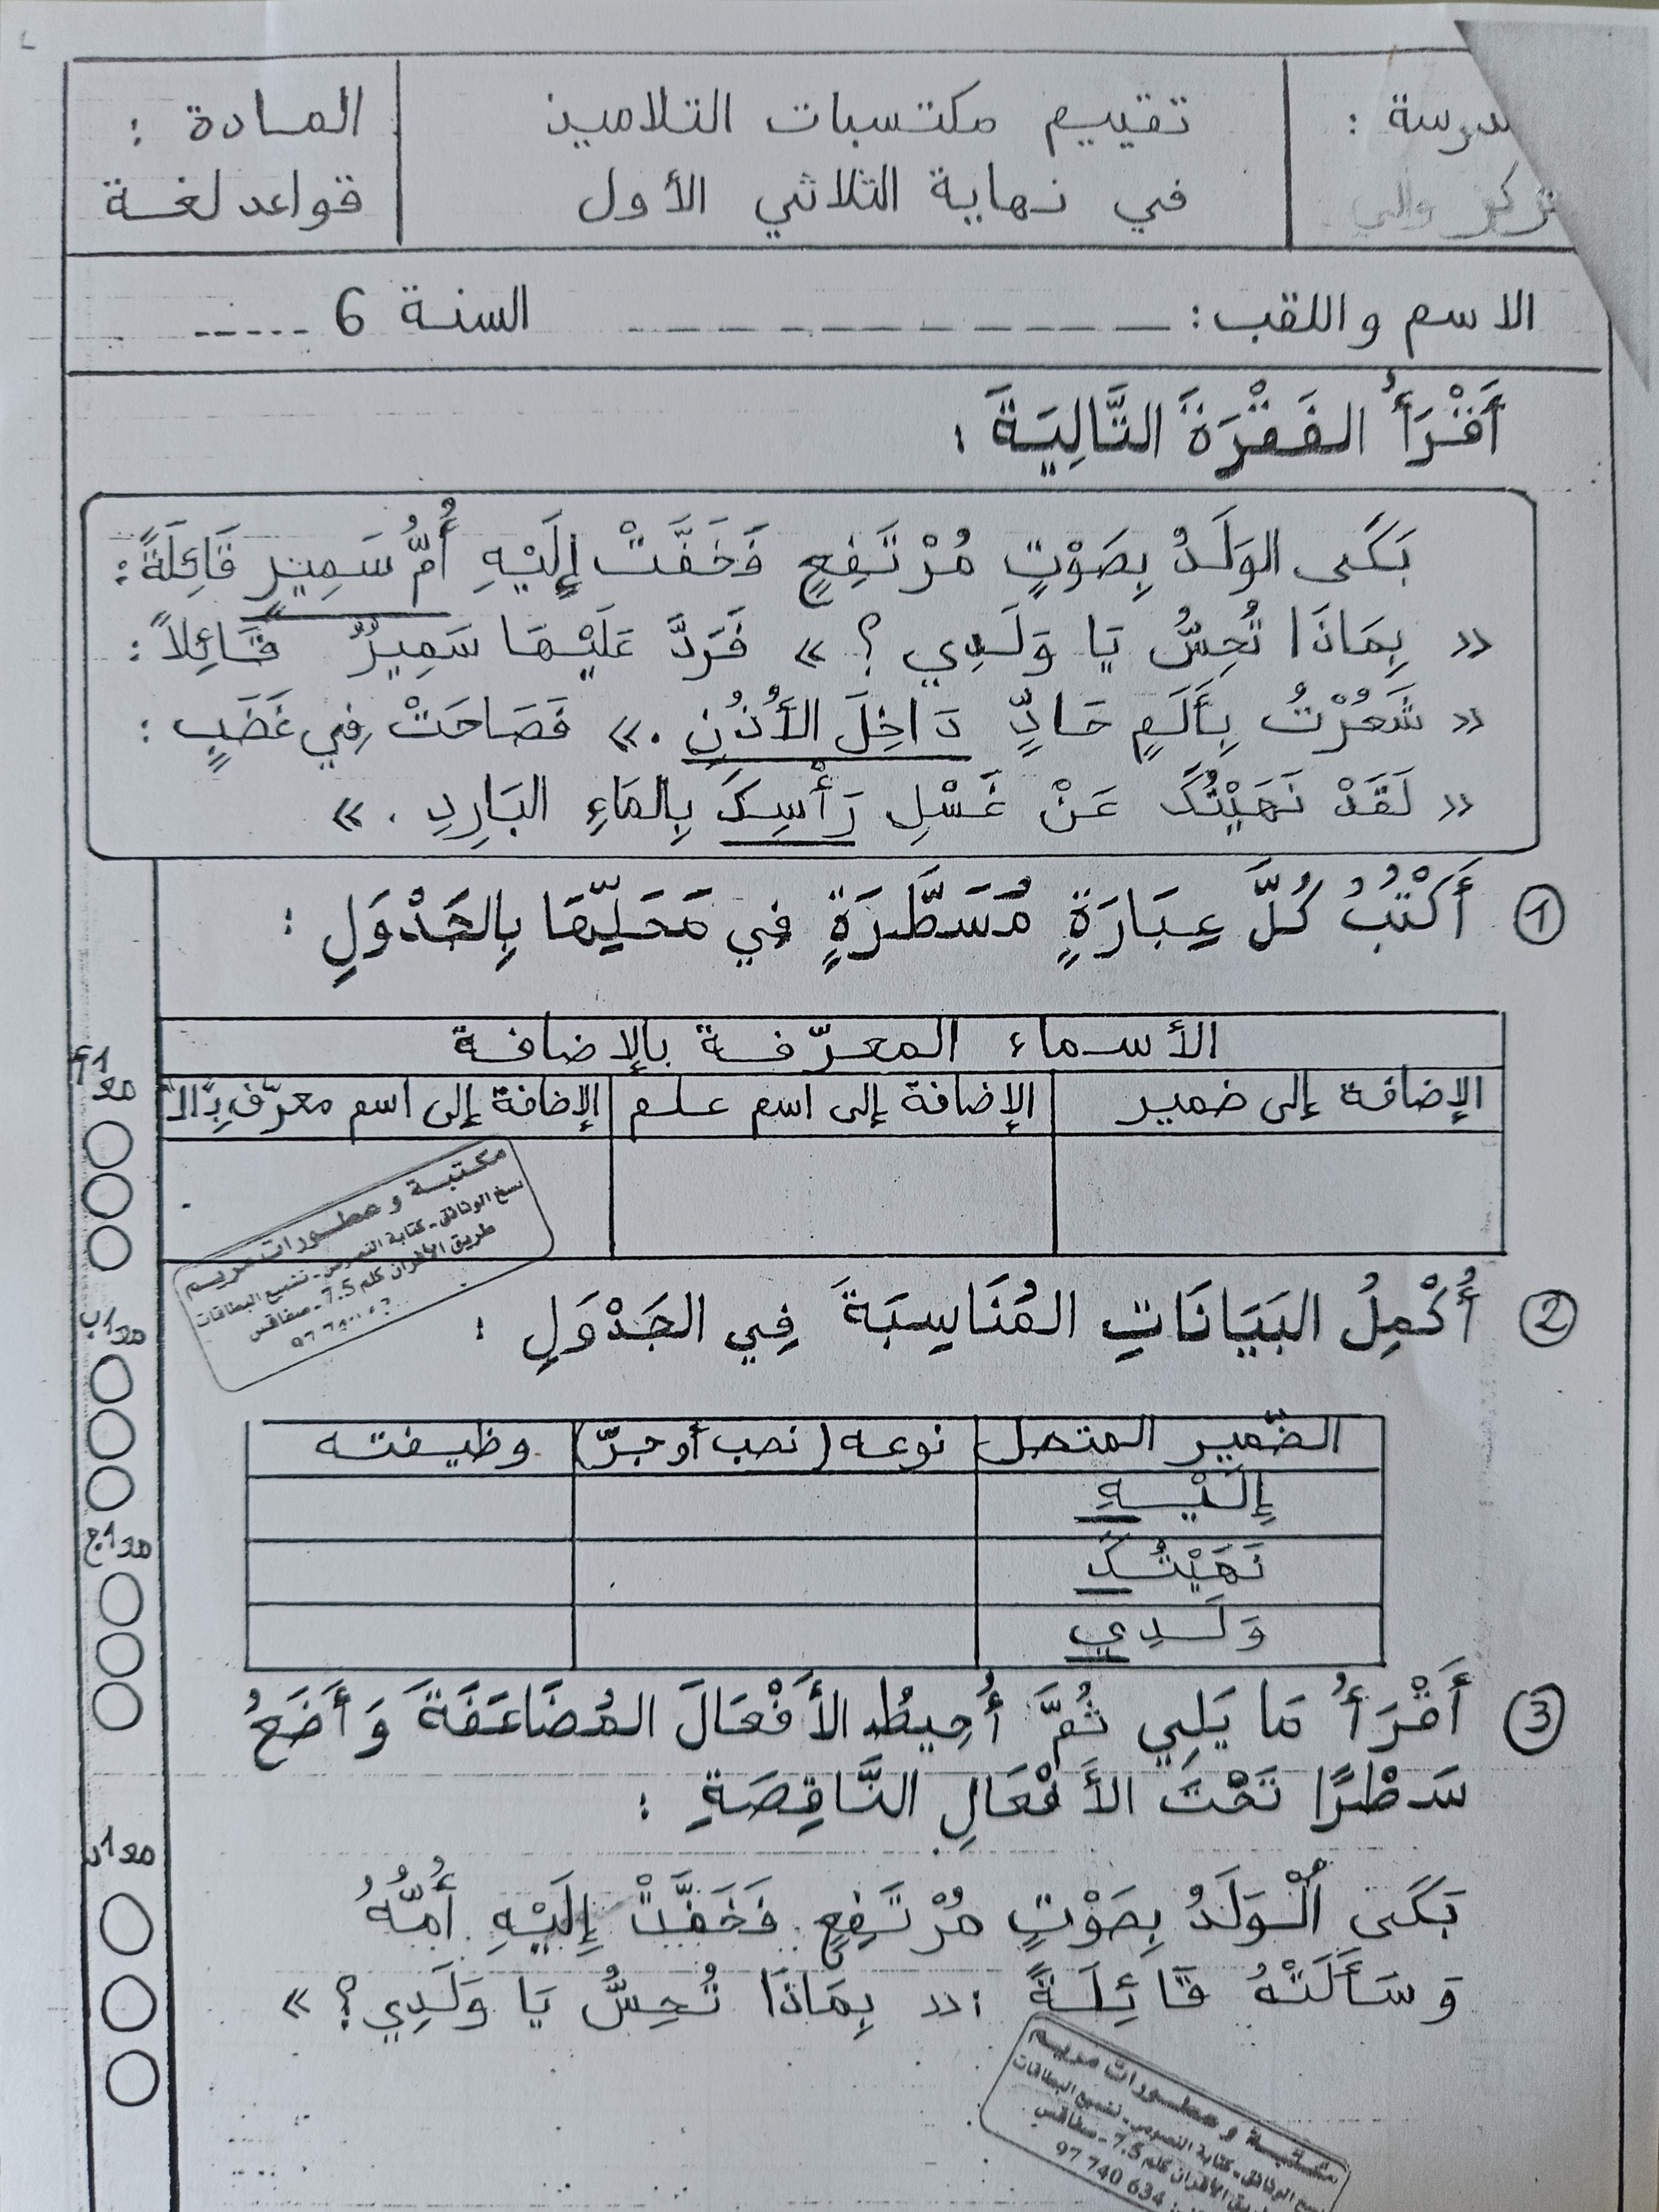 تقييم مكتسبات التلاميذ
في نهاية الثلاثي الأول
المادة :
قواعد لغة
الاسم واللقب: ------------ السنة 6 -----
أَقْرَأُ الفَقْرَةَ التَّالِيَةَ :
بَكَى الوَلَدُ بِصَوْتٍ مُرْتَفِعٍ فَخَفَّتْ إِلَيْهِ أُمُّ سَمِيرٍ قَائِلَةً :
« بِمَاذَا تُحِسُّ يَا وَلَدِي ؟ » فَرَدَّ عَلَيْهَا سَمِيرٌ قَائِلاً :
« شَعُرْتُ بِأَلَمٍ حَادٍّ دَاخِلَ الأُذُنِ . » فَصَاحَتْ فِي غَضَبٍ :
« لَقَدْ نَهَيْتُكَ عَنْ غَسْلِ رَأْسِكَ بِالمَاءِ البَارِدِ . »
① أَكْتُبُ كُلَّ عِبَارَةٍ مُسَطَّرَةٍ فِي مَحَلِّهَا بِالجَدْوَلِ :
الأسماء المعرّفة بالإضافة
الإضافة إلى ضمير
الإضافة إلى اسم علم
الإضافة إلى اسم معرّف بِـ"الـ"
مع1أ
مكتبة و عطورات مريم
نسخ الوثائق - كتابة النصوص - تشميع البطاقات
طريق الأفران كلم 7.5 - صفاقس
② أُكْمِلُ البَيَانَاتِ المُنَاسِبَةَ فِي الجَدْوَلِ :
مع1ب
الضّمير المتصل
نوعه (نصب أو جرّ)
وظيفته
إِلَيْـهِ
نَهَيْتُـكَ
وَلَـدِي
مع1ج
③ أَقْرَأُ مَا يَلِي ثُمَّ أُحِيطُ الأَفْعَالَ المُضَاعَفَةَ وَأَضَعُ
سَطْرًا تَحْتَ الأَفْعَالِ النَّاقِصَةِ :
مع1د
بَكَى الْوَلَدُ بِصَوْتٍ مُرْتَفِعٍ فَخَفَّتْ إِلَيْهِ أُمُّهُ
وَسَأَلَتْهُ قَائِلَةً : « بِمَاذَا تُحِسُّ يَا وَلَدِي ؟ »
مكتبة و عطورات مريم
نسخ الوثائق - كتابة النصوص - تشميع البطاقات
طريق الأفران كلم 7.5 - صفاقس
97 740 634